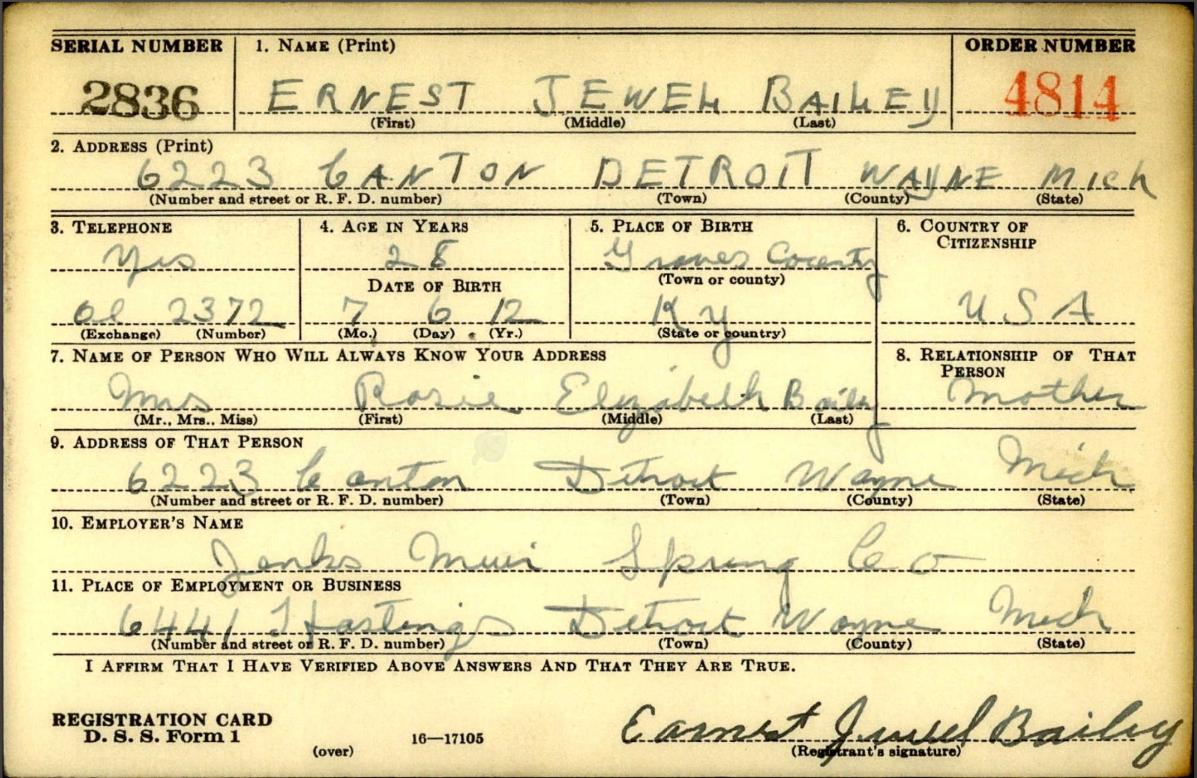 SERIAL NUMBER 1. NAME (Print) ORDER NUMBER
2836 ERNEST JEWEL BAILEY 4814
(First) (Middle) (Last)
2. ADDRESS (Print)
6223 CANTON DETROIT WAYNE MICH
(Number and street or R. F. D. number) (Town) (County) (State)
3. TELEPHONE 4. AGE IN YEARS 5. PLACE OF BIRTH 6. COUNTRY OF CITIZENSHIP
Yes 28 Graves County
(Town or county)
DATE OF BIRTH
Ol 2372 7 6 12 Ky USA
(Exchange) (Number) (Mo.) (Day) (Yr.) (State or country)
7. NAME OF PERSON WHO WILL ALWAYS KNOW YOUR ADDRESS 8. RELATIONSHIP OF THAT PERSON
Mrs Rosie Elizabeth Baily Mother
(Mr., Mrs., Miss) (First) (Middle) (Last)
9. ADDRESS OF THAT PERSON
6223 Canton Detroit Wayne Mich
(Number and street or R. F. D. number) (Town) (County) (State)
10. EMPLOYER'S NAME
Jenks Muir Spring Co
11. PLACE OF EMPLOYMENT OR BUSINESS
6441 Hastings Detroit Wayne Mich
(Number and street or R. F. D. number) (Town) (County) (State)
I AFFIRM THAT I HAVE VERIFIED ABOVE ANSWERS AND THAT THEY ARE TRUE.
REGISTRATION CARD
D. S. S. Form 1 (over) 16—17105 Earnest Jewel Bailey
(Registrant's signature)